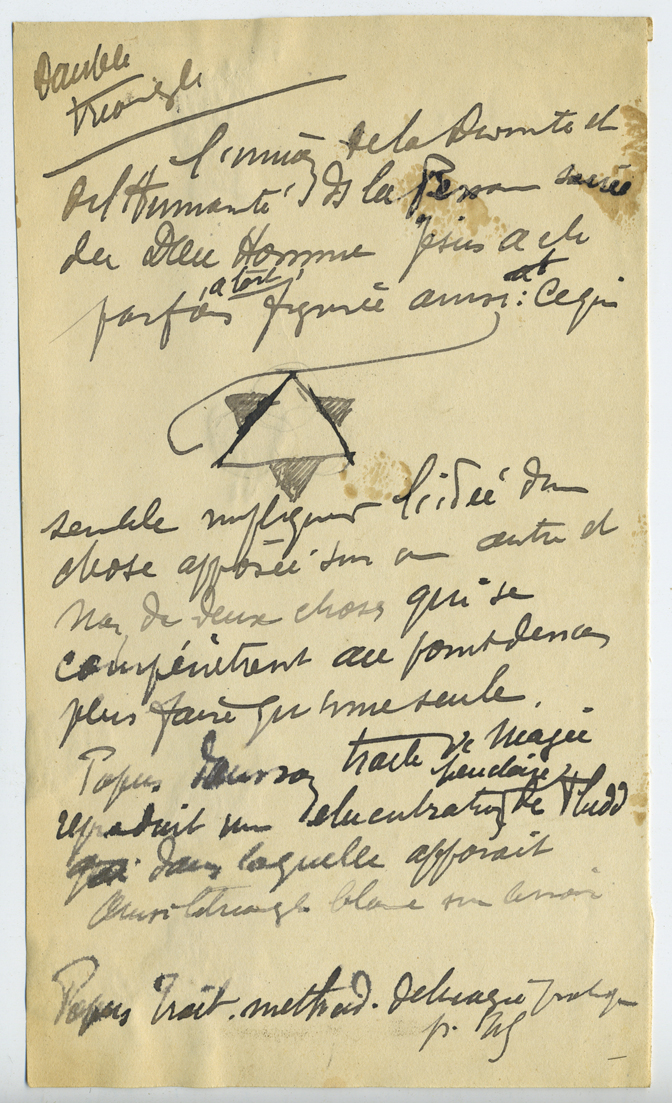 Double
triangle
l'union de la Divinité et
de l'Humanité ds la Personne sacrée
du Dieu Homme Jésus a été
parfois "à tort" figurée ainsi : Ce qui
semble impliquer l'idée d'une
chose apposée sur une autre et
non de deux choses qui se
compénètrent au point de ne
plus faire qu'une seule.
Papus dans son traité de Magie
reproduit une élucubration de Fludd
dans laquelle apparait
ainsi le triangle blanc sur le noir
Papus Trait. méthod. de magie pratique
p.